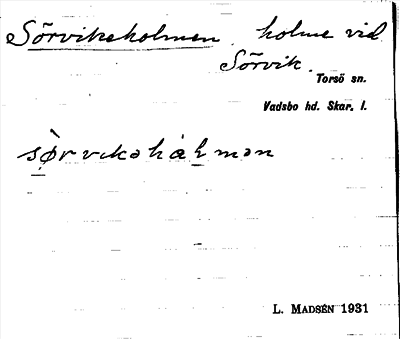 Sörvikeholmen, holme vid
Sörvik.
Torsö sn.
Vadsbo hd. Skar. l.
sø̀rvikəhȧlmən
L. MADSÉN 1931